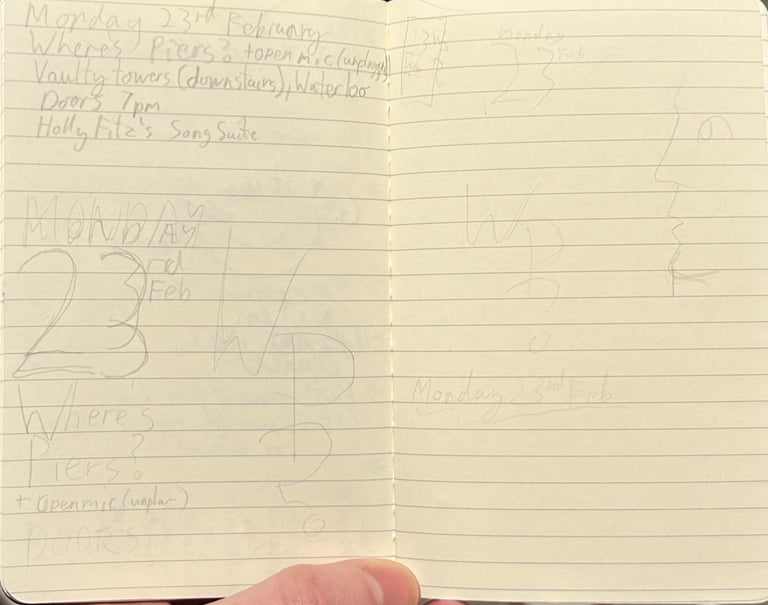 Monday 23rd February
Where's Piers? + open mic (unplugged)
Vaulty towers (downstairs), Waterloo
Doors 7pm
Holly Fitz's Song Suite
MONDAY
23rd
Feb
W
P
?
Where's
Piers?
+ open mic (unplu
DOORS
Monday
23 Feb
W
P
?
Monday 23rd Feb